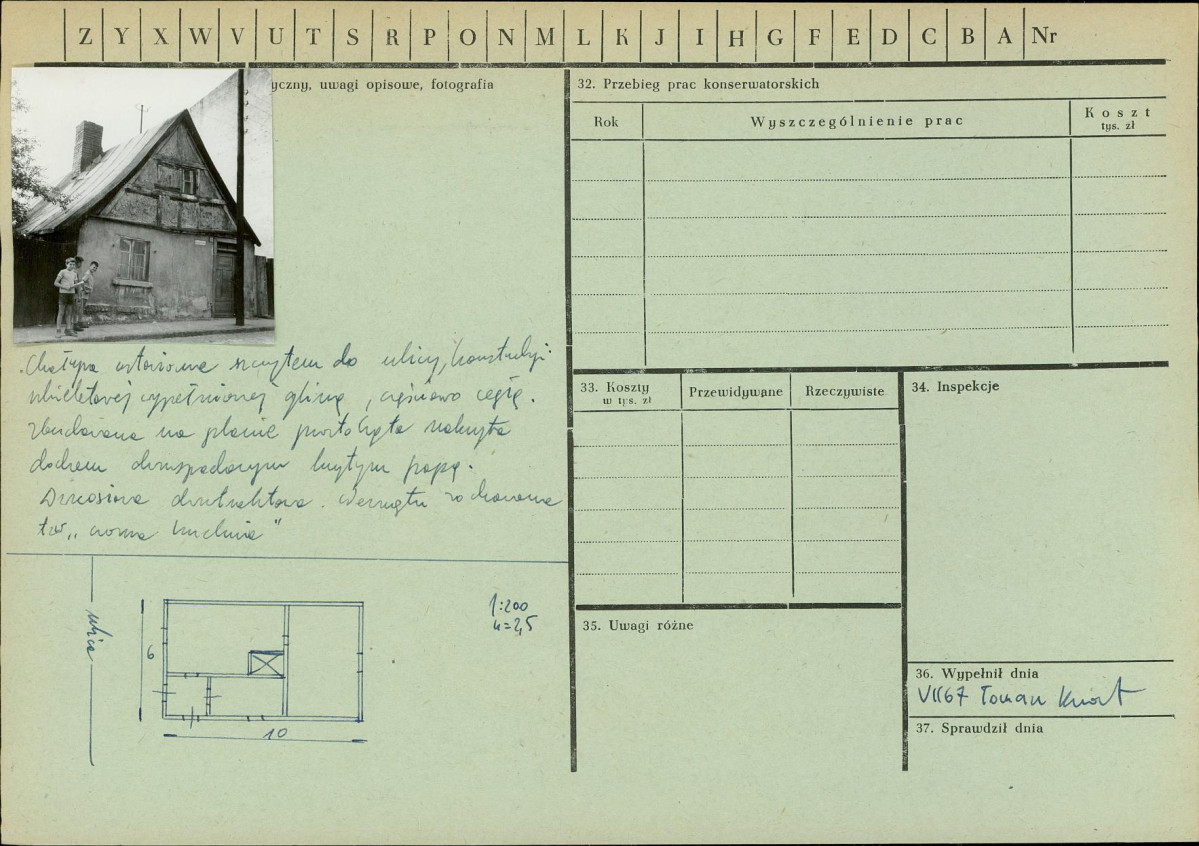 Z Y X W V U T S R P O N M L K J I H G F E D C B A Nr
yczny, uwagi opisowe, fotografia
Chałupa ustawiona szczytem do ulicy, konstrukcji
szkieletowej wypełnionej gliną, częściowo cegłą.
Zbudowana na planie prostokąta nakryta
dachem dwuspadowym krytym papą.
dwutraktowa. Wewnątrz zachowana
tzw. „czarna kuchnia"
ulica
6
10
1:200
h=2,5
32. Przebieg prac konserwatorskich
Rok
Wyszczególnienie prac
Koszt
tys. zł
33. Koszty
w tys. zł
Przewidywane
Rzeczywiste
34. Inspekcje
35. Uwagi różne
36. Wypełnił dnia
VII 67 Roman
37. Sprawdził dnia